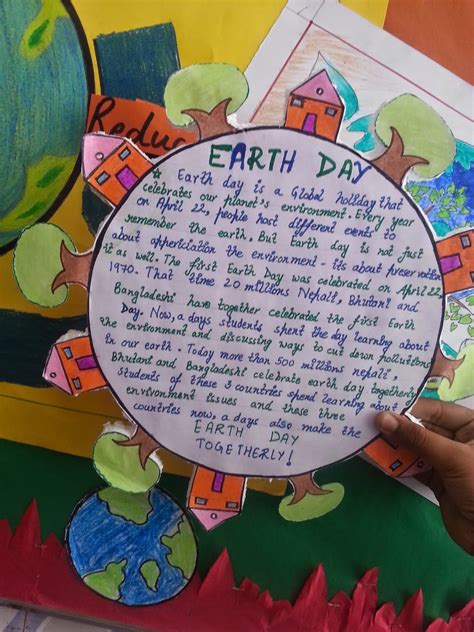 Reduc
EARTH DAY
★ Earth day is a Global holiday that
celebrates our planet's environment. Every year
on April 22, people host different events to
remember the earth, But Earth day is not just
about appericiation the environment - its about preservation
it as well. The first Earth Day was celebrated on April 22,
1970. That time 20 millions Nepali, Bhutani and
Bangladeshi have together celebrated the first Earth
Day. Now, a days students spent the day learning about
the environment and discussing ways to cut down pollutions
in our earth. Today more than 500 millions nepali,
Bhutani and Bangladeshi celebrate earth day togetherly
students of these 3 countries spend learning about
environment issues and these three
countries now, a days also make the
EARTH DAY
TOGETHERLY!